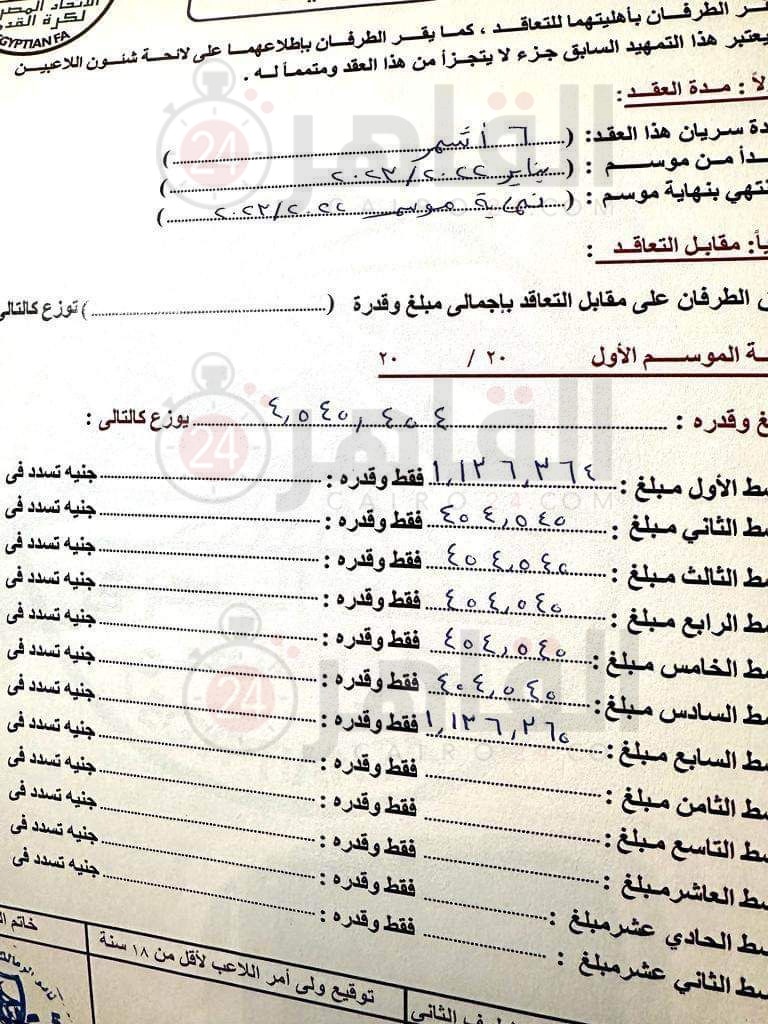 الاتحاد المصر
لكرة القدم
EGYPTIAN FA
ـقر الطرفان بأهليتهما للتعاقد ، كما يقر الطرفان بإطلاعهما على لائحة شئون اللاعبين
يعتبر هذا التمهيد السابق جزء لا يتجزأ من هذا العقد ومتمماً له .
لاً : مـدة العقـد :
دة سريان هذا العقد: (٦ أشهر)
ـدأ مـن موسـم : (يناير ٢٠٢٢/٢٠٢٣)
نتهي بنهاية موسم : (نهاية موسم ٢٠٢٢/٢٠٢٣)
ياً: مقابـل التعاقـد :
ـق الطرفان على مقابل التعاقد بإجمالى مبلغ وقدرة (............) توزع كالتالى
ـة الموسـم الأول ٢٠ / ٢٠
ـغ وقدره : ٤,٥٤٥,٤٥٤ يوزع كالتالى :
ـط الأول مـبلغ : ١,١٣٦,٣٦٤ فقط وقدره : ............ جنيه تسدد فى
ـط الثاني مـبلغ : ٤٥٤,٥٤٥ فقط وقدره : ............ جنيه تسدد فى
ـط الثالث مـبلغ : ٤٥٤,٥٤٥ فقط وقدره : ............ جنيه تسدد فى
ـط الرابع مـبلغ : ٤٥٤,٥٤٥ فقط وقدره : ............ جنيه تسدد فى
ـط الخامس مـبلغ : ٤٥٤,٥٤٥ فقط وقدره : ............ جنيه تسدد فى
ـط السادس مـبلغ : ٤٥٤,٥٤٥ فقط وقدره : ............ جنيه تسدد فى
ـط السابع مـبلغ : ١,١٣٦,٣٦٥ فقط وقدره : ............ جنيه تسدد فى
ـط الثامن مـبلغ : ............ فقط وقدره : ............ جنيه تسدد فى
ـط التاسع مـبلغ : ............ فقط وقدره : ............ جنيه تسدد فى
ـط العاشر مبلغ : ............ فقط وقدره : ............ جنيه تسدد فى
ـط الحادي عشر مبلغ : ............ فقط وقدره : ............ جنيه تسدد فى
ـط الثاني عشر مبلغ : ............ فقط وقدره : ............ جنيه تسدد فى
ـطرف الثانى
توقيع ولى أمر اللاعب لأقل من ١٨ سنة
خاتم الـ
القاهرة 24
CAIRO24.COM
القاهرة 24
CAIRO24.COM
القاهرة 24
CAIRO24.COM